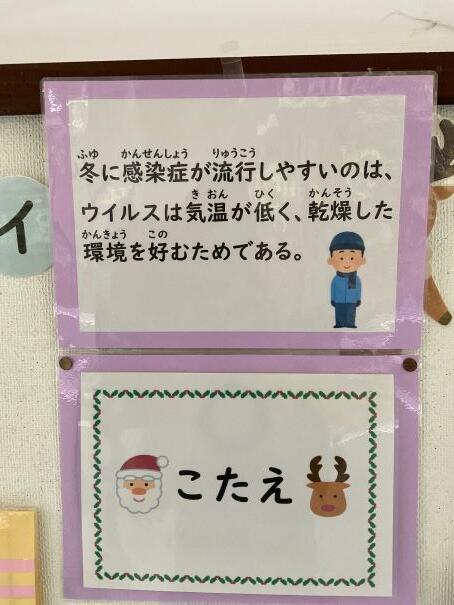 ふゆ かんせんしょう りゅうこう
冬に感染症が流行しやすいのは、
きおん ひく かんそう
ウイルスは気温が低く、乾燥した
かんきょう この
環境を好むためである。
イ
こたえ